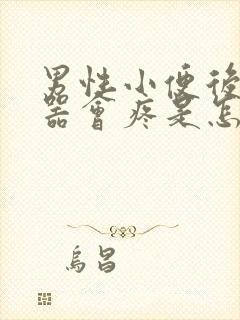 男性小便後
器會疼是怎
烏昌